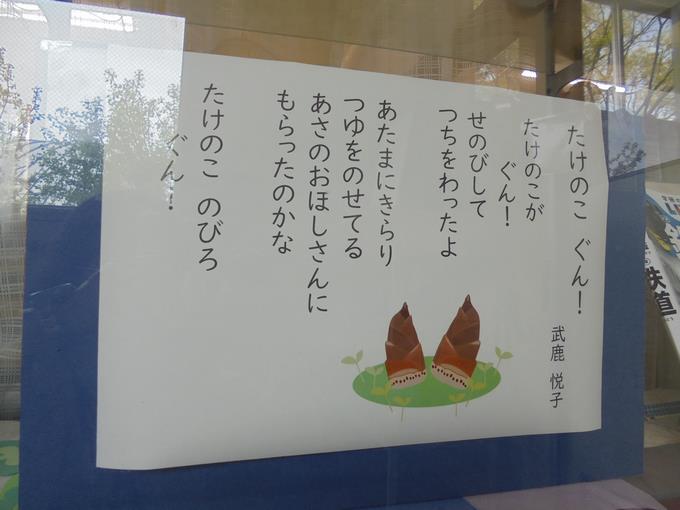 たけのこ ぐん！
武鹿 悦子
たけのこが
ぐん！
せのびして
つちをわったよ
あたまにきらり
つゆをのせてる
あさのおほしさんに
もらったのかな
たけのこ のびろ
ぐん！
鉄道